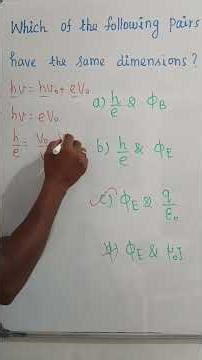 Which of the following pairs
have the same dimensions?
hν = hν₀ + eV₀
hν = eV₀
h/e = V₀
a) h/e & ϕ_B
b) h/e & ϕ_E
c) ϕ_E & q/ε₀
d) ϕ_E & μ₀I